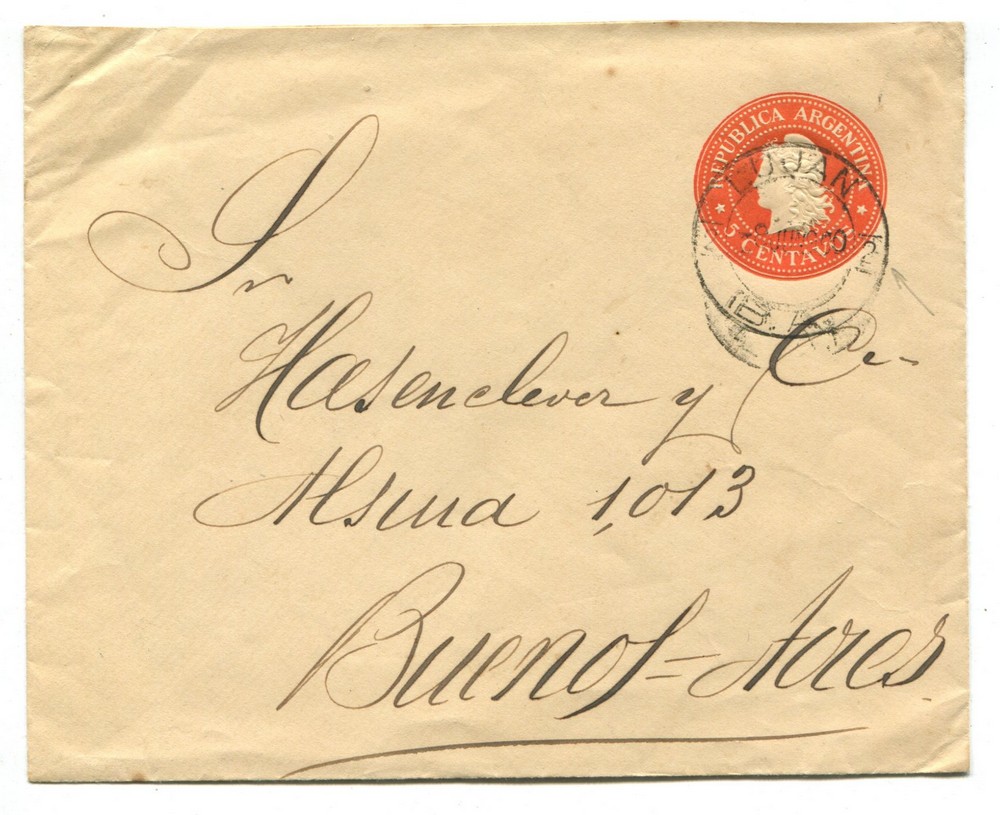 REPUBLICA ARGENTINA
5 CENTAVOS
LUJAN
Sr
Hasenclever y Ce
Alsina 1,013
Buenos=Aires